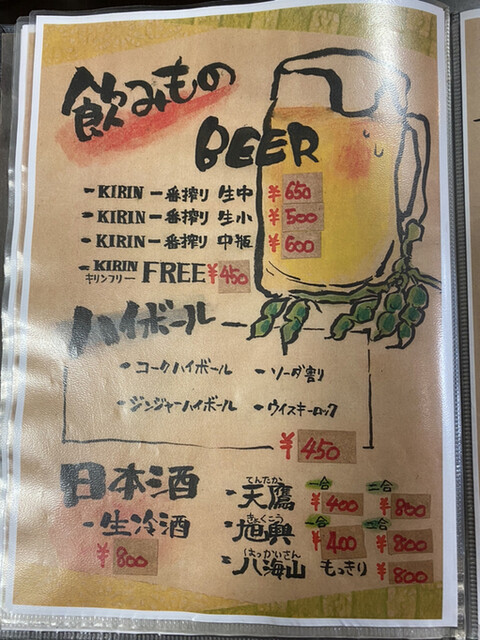 飲みもの
BEER
-KIRIN 一番搾り 生中 ¥650
-KIRIN 一番搾り 生小 ¥500
-KIRIN 一番搾り 中瓶 ¥600
-KIRIN FREE ¥450
キリンフリー
ハイボール
-コークハイボール -ソーダ割り
-ジンジャーハイボール -ウイスキーロック
¥450
日本酒
-生冷酒
¥800
てんたか
-天鷹 一合 ¥400 二合 ¥800
きょくこう
-旭興 一合 ¥400 二合 ¥800
はっかいさん
-八海山 もっきり ¥800